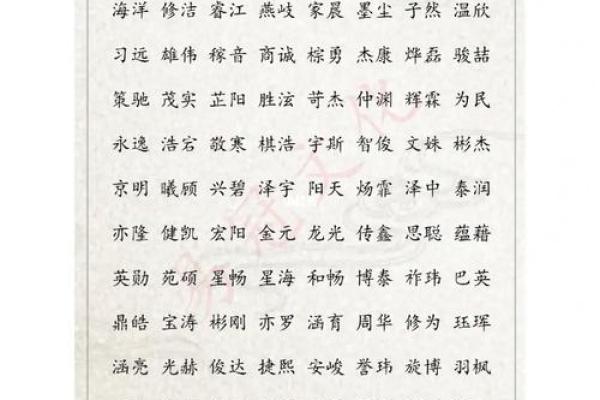 海洋 修洁 睿江 燕岐 家晨 墨尘 子然 温欣
习远 雄伟 稼音 商诚 棕勇 杰康 烨磊 骏喆
策驰 茂实 芷阳 胜泫 苛杰 仲渊 辉霖 为民
永逸 浩宕 敬寒 棋浩 宇斯 智俊 文姝 彬杰
京明 曦顾 兴碧 泽宇 阳天 炀霏 泽中 泰润
亦隆 健凯 宏阳 金元 龙光 传鑫 思聪 蕴藉
英勋 苑硕 星畅 星海 和畅 博泰 祚玮 巴英
鼎皓 宝涛 彬刚 亦罗 涵育 周华 修为 珏珲
涵亮 光赫 俊达 捷熙 安峻 誉玮 旋博 羽枫